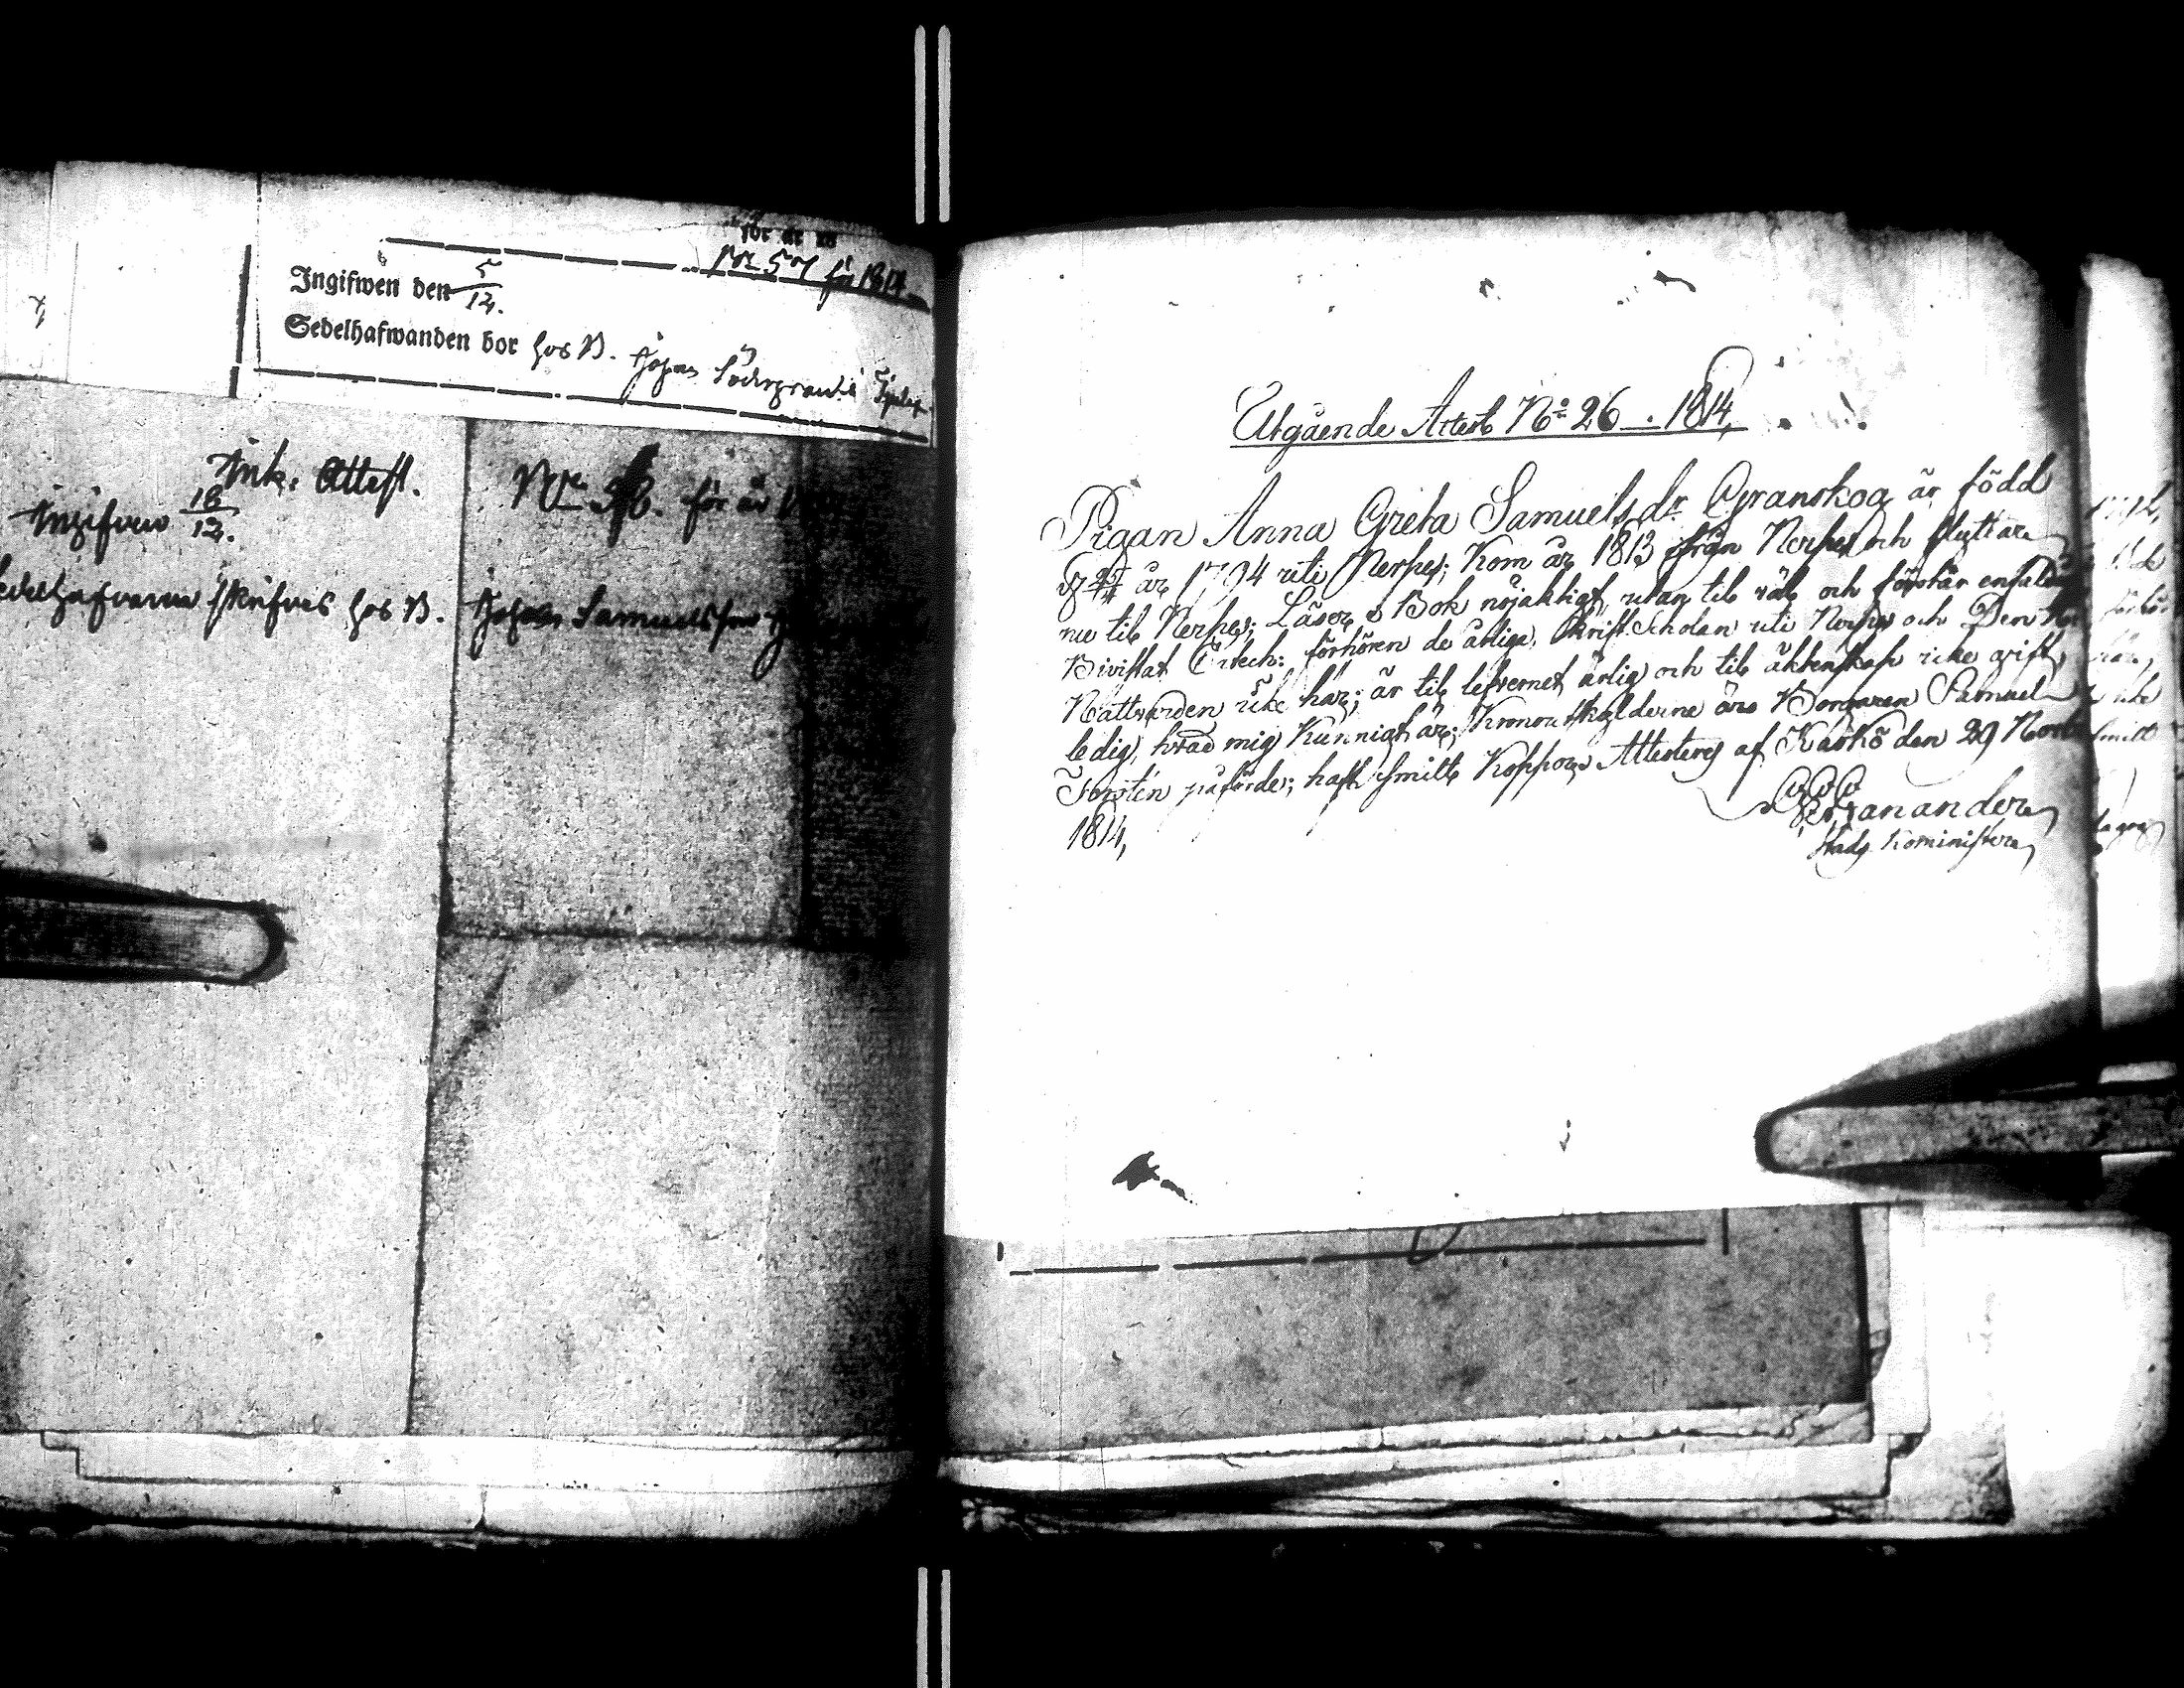 för år 18
Nr 57 för 1814
Ingifwen den 5/12.
Sedelhafwanden bor hos B. Johan Södergrann i
Ink. Attest. Nr 58. för år
Ingifven 18/12.
Sedelhafvaren skrifves hos B. Johan Samuelsson
Utgående Attest No 26. 1814,
Pigan Anna Greta Samuelsdr Granskog är född
år 1794 uti Nerpes; Kom år 1813 ifrån Nerpes och flyttar
nu til Nerpes; Läser i Bok nöjaktigt, utan til väl och förstår enfaldigt
Bivistat Catech: förhören de årliga, Skrift Scholan uti Nerpes och Den
Nattvarden icke har; är til lefvernet ärlig och til äktenskap icke gift,
ledig, hvad mig kunnigt är; Kronoutskylderne äro Borgaren Samuel
Forstén påförde; haft smitt Koppor. Attesteras af Kaskö den 29 Nov
1814,
Grananders
Stads Kominister